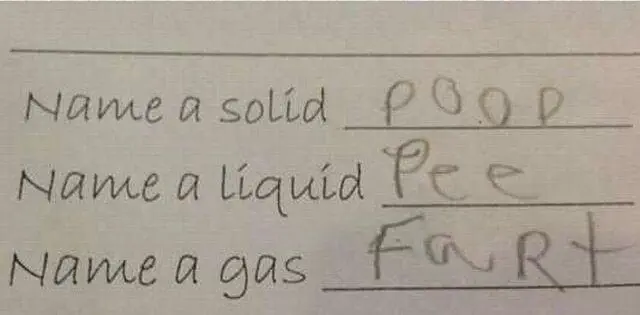 Name a solid POOP
Name a liquid Pee
Name a gas FaRt